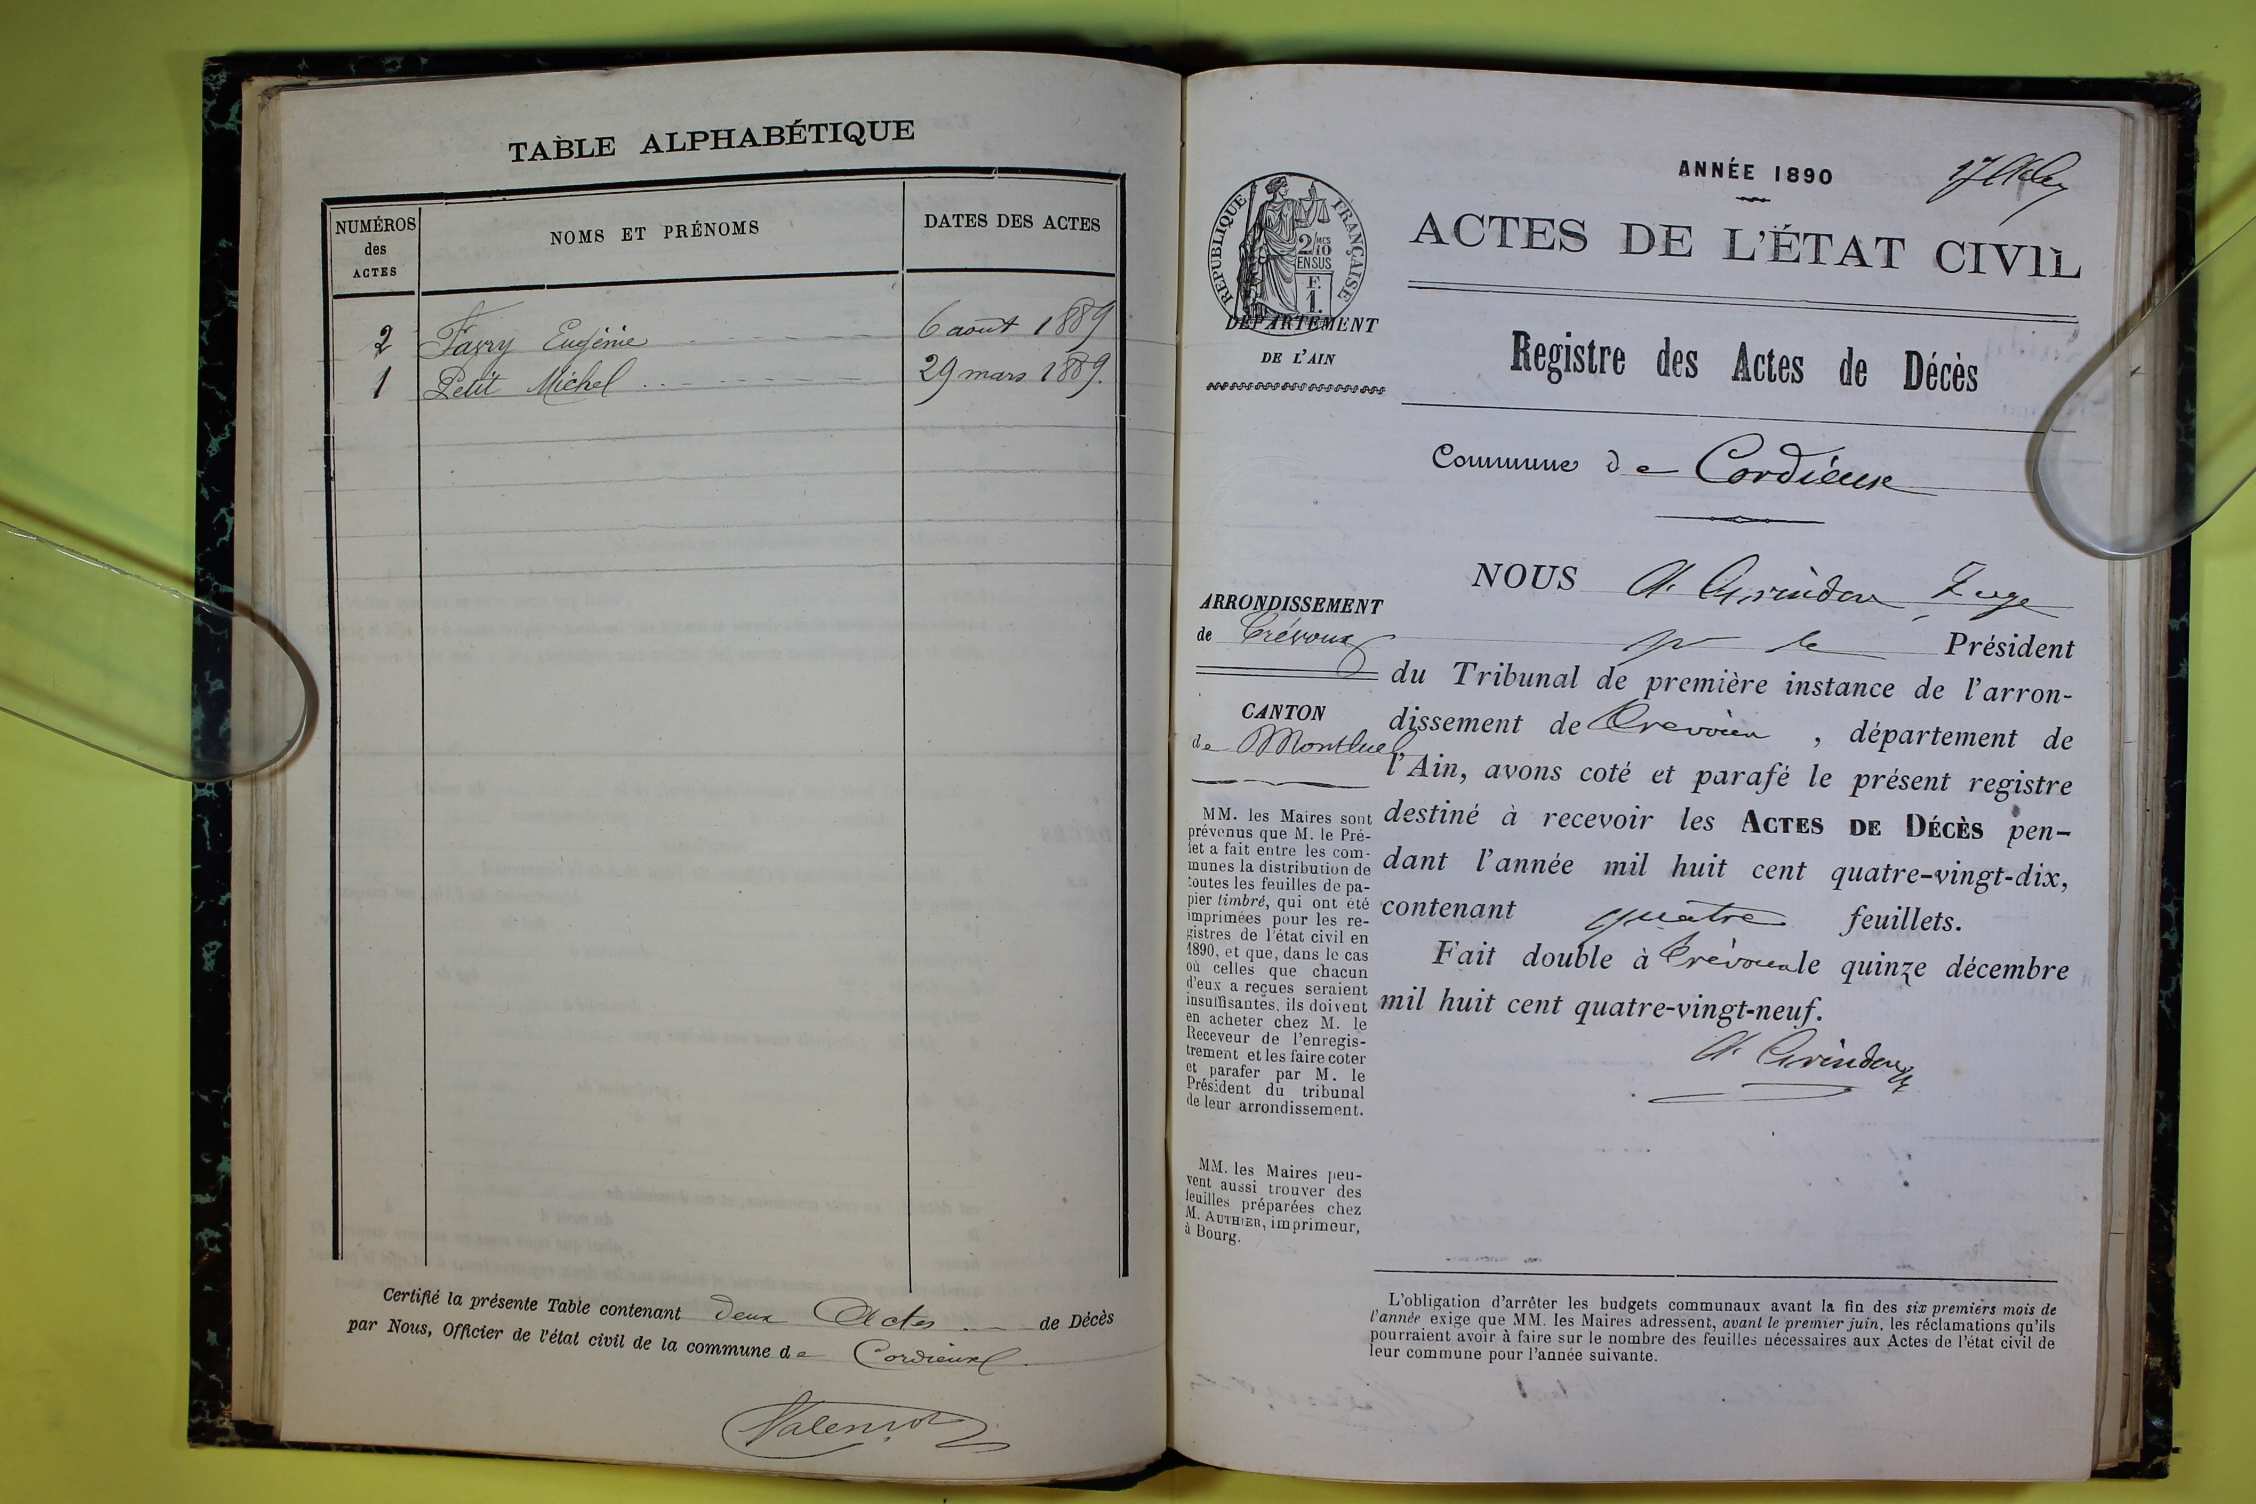 TABLE ALPHABÉTIQUE
NUMÉROS
des
ACTES
NOMS ET PRÉNOMS
DATES DES ACTES
2 Favry Eugénie 6 août 1889
1 Petit Michel 29 mars 1889.
Certifié la présente Table contenant deux Actes de Décès
par Nous, Officier de l'état civil de la commune de Cordieux
ANNÉE 1890
RÉPUBLIQUE FRANÇAISE
2/10 MES
EN SUS
F.
1.
ACTES DE L'ÉTAT CIVIL
DÉPARTEMENT
DE L'AIN
Registre des Actes de Décès
Commune de Cordieux
ARRONDISSEMENT
de Trévoux
CANTON
de Montluel
MM. les Maires sont
prévenus que M. le Pré-
fet a fait entre les com-
munes la distribution de
toutes les feuilles de pa-
pier timbré, qui ont été
imprimées pour les re-
gistres de l'état civil en
1890, et que, dans le cas
où celles que chacun
d'eux a reçues seraient
insuffisantes, ils doivent
en acheter chez M. le
Receveur de l'enregis-
trement et les faire coter
et parafer par M. le
Président du tribunal
de leur arrondissement.
MM. les Maires peu-
vent aussi trouver des
feuilles préparées chez
M. AUTHIER, imprimeur,
à Bourg.
NOUS A. Grindon, Juge
pr le Président
du Tribunal de première instance de l'arron-
dissement de Trévoux, département de
l'Ain, avons coté et parafé le présent registre
destiné à recevoir les ACTES DE DÉCÈS pen-
dant l'année mil huit cent quatre-vingt-dix,
contenant quatre feuillets.
Fait double à Trévoux le quinze décembre
mil huit cent quatre-vingt-neuf.
A. Grindon
L'obligation d'arrêter les budgets communaux avant la fin des six premiers mois de
l'année exige que MM. les Maires adressent, avant le premier juin, les réclamations qu'ils
pourraient avoir à faire sur le nombre des feuilles nécessaires aux Actes de l'état civil de
leur commune pour l'année suivante.